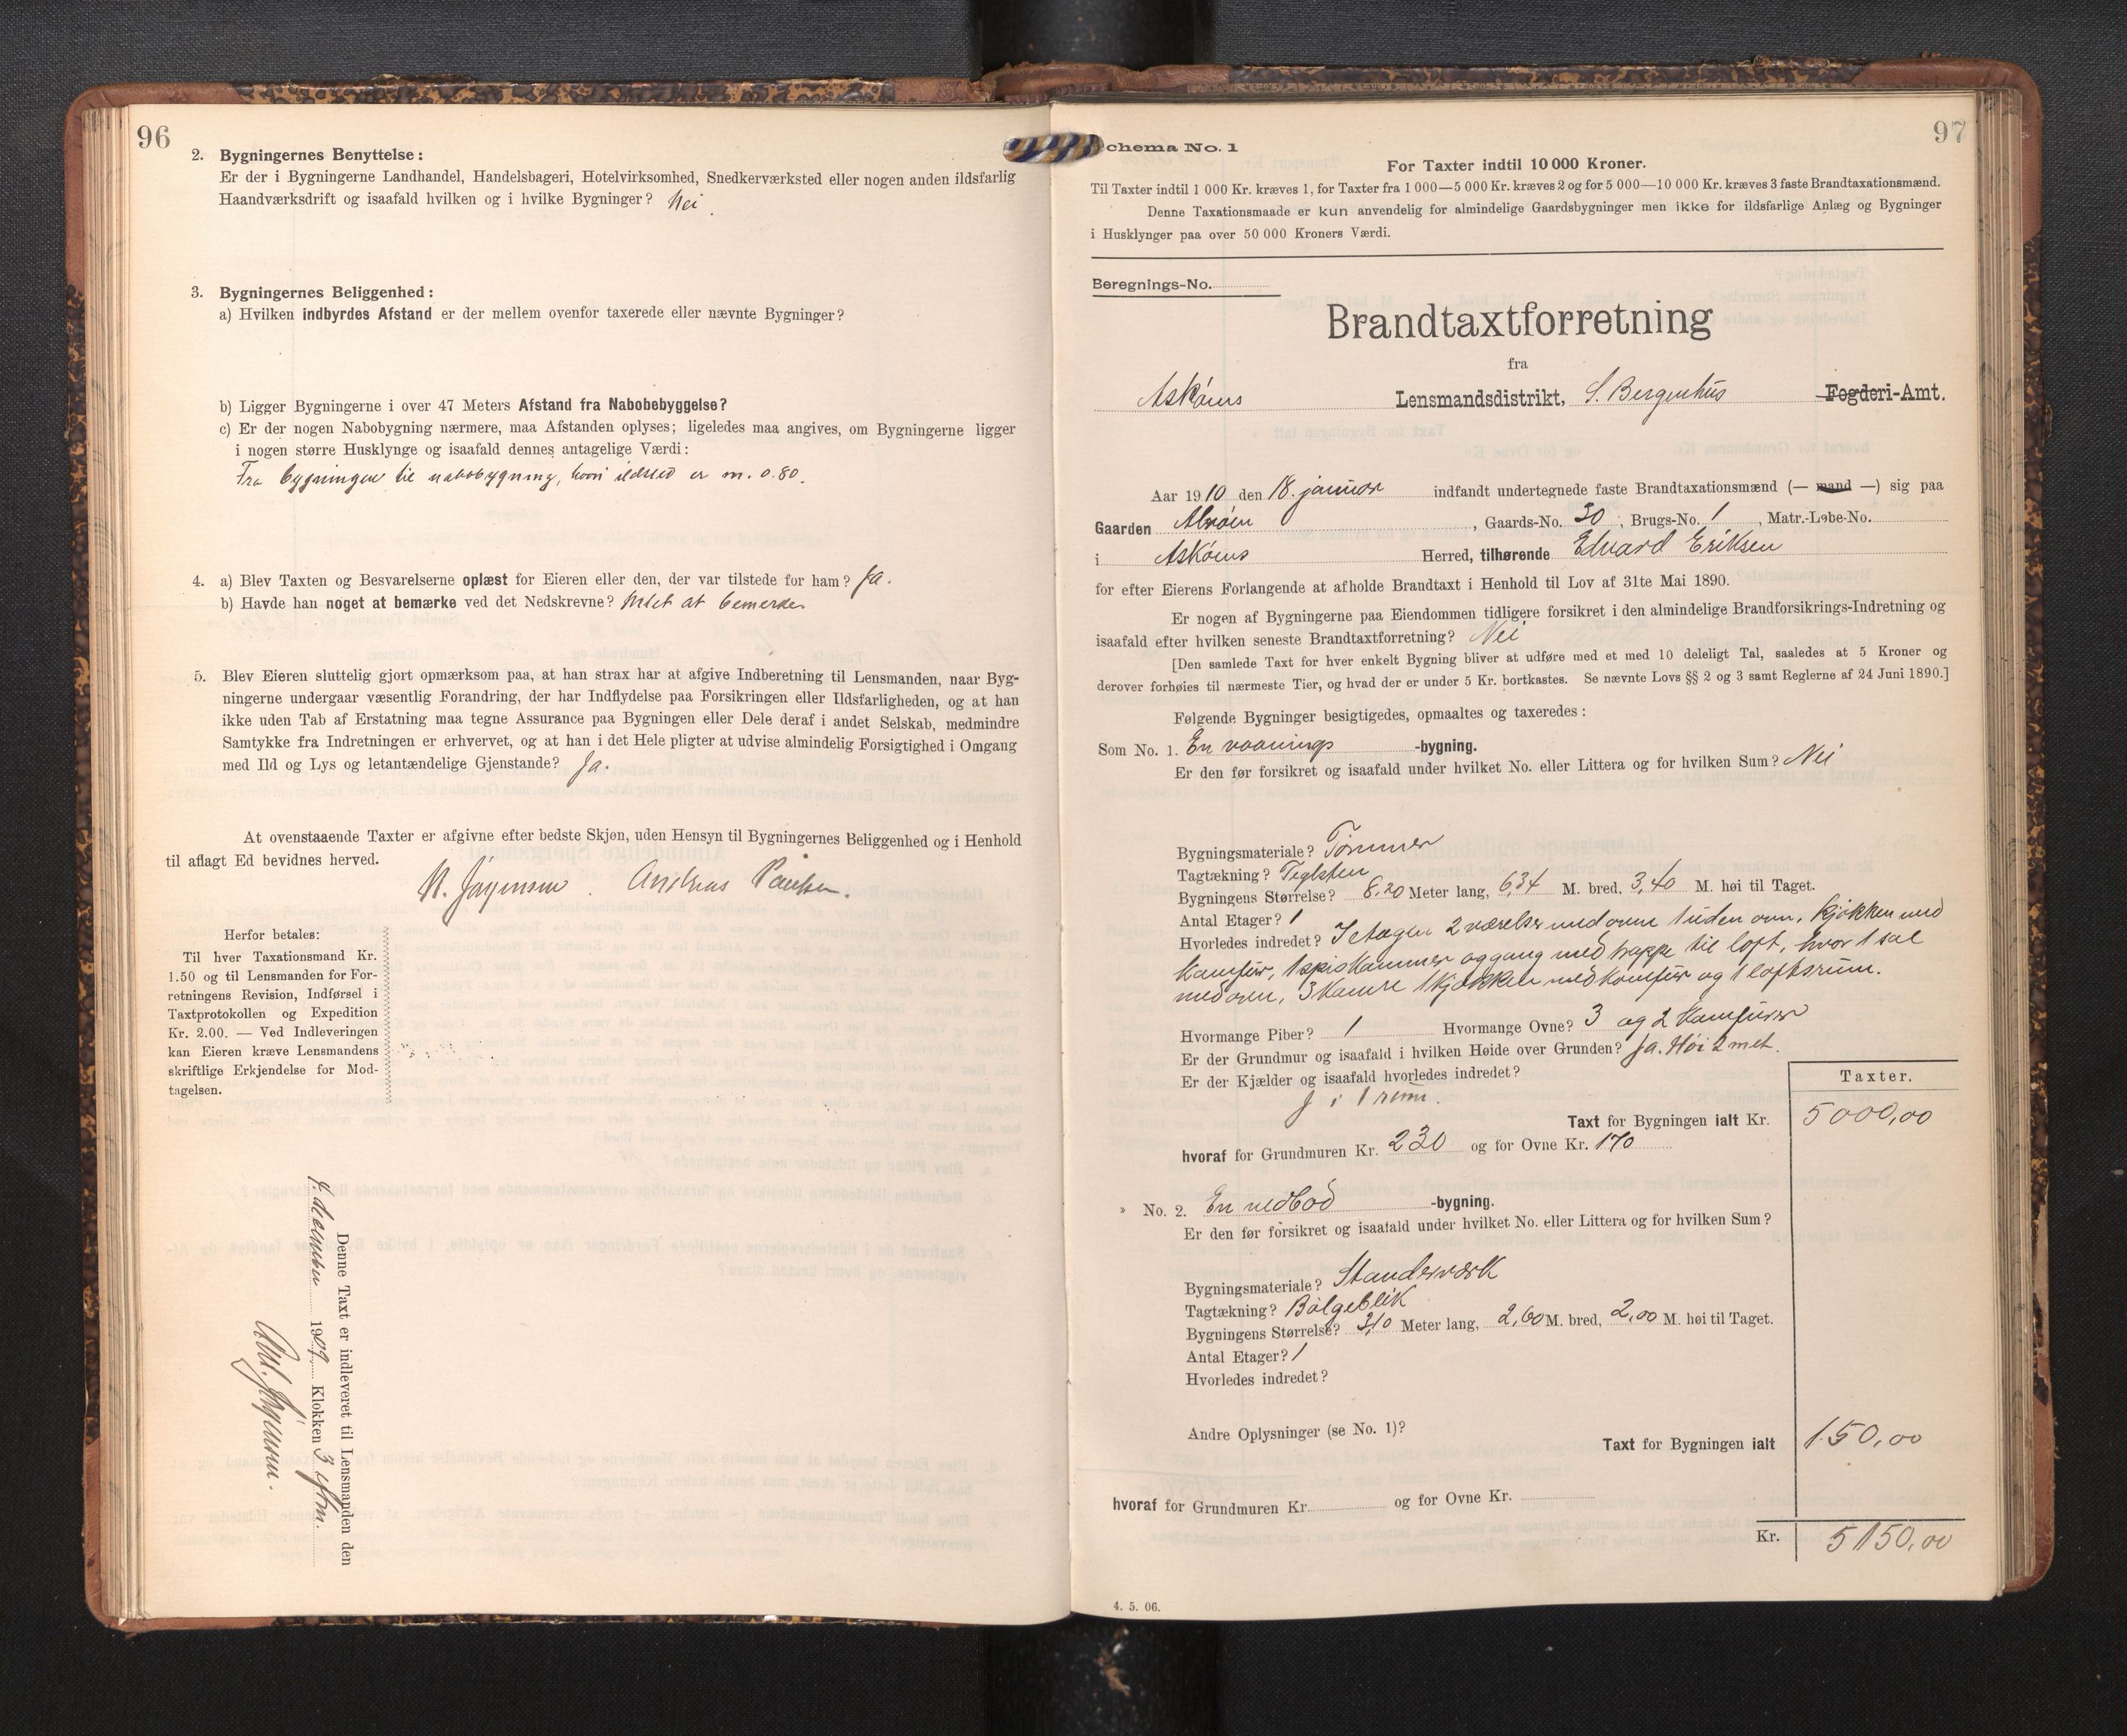 96
2. Bygningernes Benyttelse:
Er der i Bygningerne Landhandel, Handelsbageri, Hotelvirksomhed, Snedkerværksted eller nogen anden ildsfarlig
Haandværksdrift og isaafald hvilken og i hvilke Bygninger? Nei.
3. Bygningernes Beliggenhed:
a) Hvilken indbyrdes Afstand er der mellem ovenfor taxerede eller nævnte Bygninger?
b) Ligger Bygningerne i over 47 Meters Afstand fra Nabobebyggelse?
c) Er der nogen Nabobygning nærmere, maa Afstanden oplyses; ligeledes maa angives, om Bygningerne ligger
i nogen større Husklynge og isaafald dennes antagelige Værdi:
Fra bygningen til nabobygning, hvori ildsted er m. 0.80.
4. a) Blev Taxten og Besvarelserne oplæst for Eieren eller den, der var tilstede for ham? Ja.
b) Havde han noget at bemærke ved det Nedskrevne? Intet at bemerke
5. Blev Eieren sluttelig gjort opmærksom paa, at han strax har at afgive Indberetning til Lensmanden, naar Byg-
ningerne undergaar væsentlig Forandring, der har Indflydelse paa Forsikringen eller Ildsfarligheden, og at han
ikke uden Tab af Erstatning maa tegne Assurance paa Bygningen eller Dele deraf i andet Selskab, medmindre
Samtykke fra Indretningen er erhvervet, og at han i det Hele pligter at udvise almindelig Forsigtighed i Omgang
med Ild og Lys og letantændelige Gjenstande? Ja.
At ovenstaaende Taxter er afgivne efter bedste Skjøn, uden Hensyn til Bygningernes Beliggenhed og i Henhold
til aflagt Ed bevidnes herved.
N. Jørgensen. Andreas Paulsen.
Herfor betales:
Til hver Taxationsmand Kr.
1.50 og til Lensmanden for For-
retningens Revision, Indførsel i
Taxtprotokollen og Expedition
Kr. 2.00. — Ved Indleveringen
kan Eieren kræve Lensmandens
skriftlige Erkjendelse for Mod-
tagelsen.
Denne Taxt er indleveret til Lensmanden den
4. december 1909. Klokken 3 eftm.
97
Schema No. 1
For Taxter indtil 10 000 Kroner.
Til Taxter indtil 1 000 Kr. kræves 1, for Taxter fra 1 000—5 000 Kr. kræves 2 og for 5 000—10 000 Kr. kræves 3 faste Brandtaxationsmænd.
Denne Taxationsmaade er kun anvendelig for almindelige Gaardsbygninger men ikke for ildsfarlige Anlæg og Bygninger
i Husklynger paa over 50 000 Kroners Værdi.
Beregnings-No.
Brandtaxtforretning
fra
Askøens Lensmandsdistrikt, S. Bergenhus Fogderi-Amt.
Aar 1910 den 18. januar indfandt undertegnede faste Brandtaxationsmænd (— mand —) sig paa
Gaarden Alvøen, Gaards-No. 30, Brugs-No. 1, Matr.-Løbe-No.
i Askøens Herred, tilhørende Edvard Eriksen
for efter Eierens Forlangende at afholde Brandtaxt i Henhold til Lov af 31te Mai 1890.
Er nogen af Bygningerne paa Eiendommen tidligere forsikret i den almindelige Brandforsikrings-Indretning og
isaafald efter hvilken seneste Brandtaxtforretning? Nei
[Den samlede Taxt for hver enkelt Bygning bliver at udføre med et med 10 deleligt Tal, saaledes at 5 Kroner og
derover forhøies til nærmeste Tier, og hvad der er under 5 Kr. bortkastes. Se nævnte Lovs §§ 2 og 3 samt Reglerne af 24 Juni 1890.]
Følgende Bygninger besigtigedes, opmaaltes og taxeredes:
Som No. 1. En vaanings-bygning.
Er den før forsikret og isaafald under hvilket No. eller Littera og for hvilken Sum? Nei
Bygningsmateriale? Tømmer
Tagtækning? Teglsten
Bygningens Størrelse? 8,20 Meter lang, 6,34 M. bred, 3,40 M. høi til Taget.
Antal Etager? 1
Hvorledes indredet? I etagen 2 værelser med ovne 1 uden ovn, kjøkken med
komfür, 1 spiskammer og gang med trappe til loft, hvor 1 sal
med ovn, 3 kamre 1 kjøkken med komfür og 1 loftsrum.
Hvormange Piber? 1 Hvormange Ovne? 3 og 2 komfürer
Er der Grundmur og isaafald i hvilken Høide over Grunden? Ja. Høi 2 met.
Er der Kjælder og isaafald hvorledes indredet?
J i 1 rum.
Taxter.
Taxt for Bygningen ialt Kr. 5000,00
hvoraf for Grundmuren Kr. 230 og for Ovne Kr. 170
» No. 2. En vedbod-bygning.
Er den før forsikret og isaafald under hvilket No. eller Littera og for hvilken Sum?
Bygningsmateriale? Standerværk
Tagtækning? Bølgeblik
Bygningens Størrelse? 3,10 Meter lang, 2,60 M. bred, 2,00 M. høi til Taget.
Antal Etager? 1
Hvorledes indredet?
Andre Oplysninger (se No. 1)?
Taxt for Bygningen ialt 150,00
hvoraf for Grundmuren Kr. og for Ovne Kr.
Kr. 5150,00
4. 5. 06.